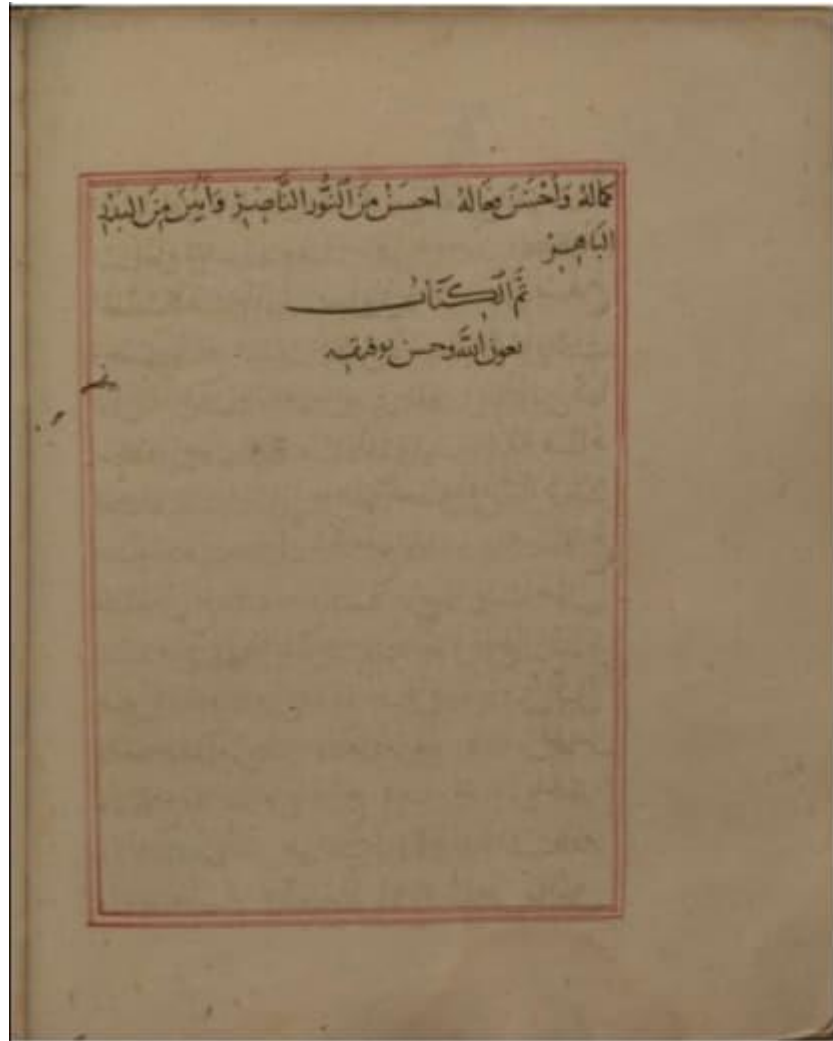 كماله وَأَحْسَنَ مَجَالهُ احسَنْ مِنَ النُّور النَّاضِرْ وَأَبْيَنَ مِنَ البَدْرِ
البَاهِرْ
تَمَّ الكتَاب
بعون الله وحسن توفيقه